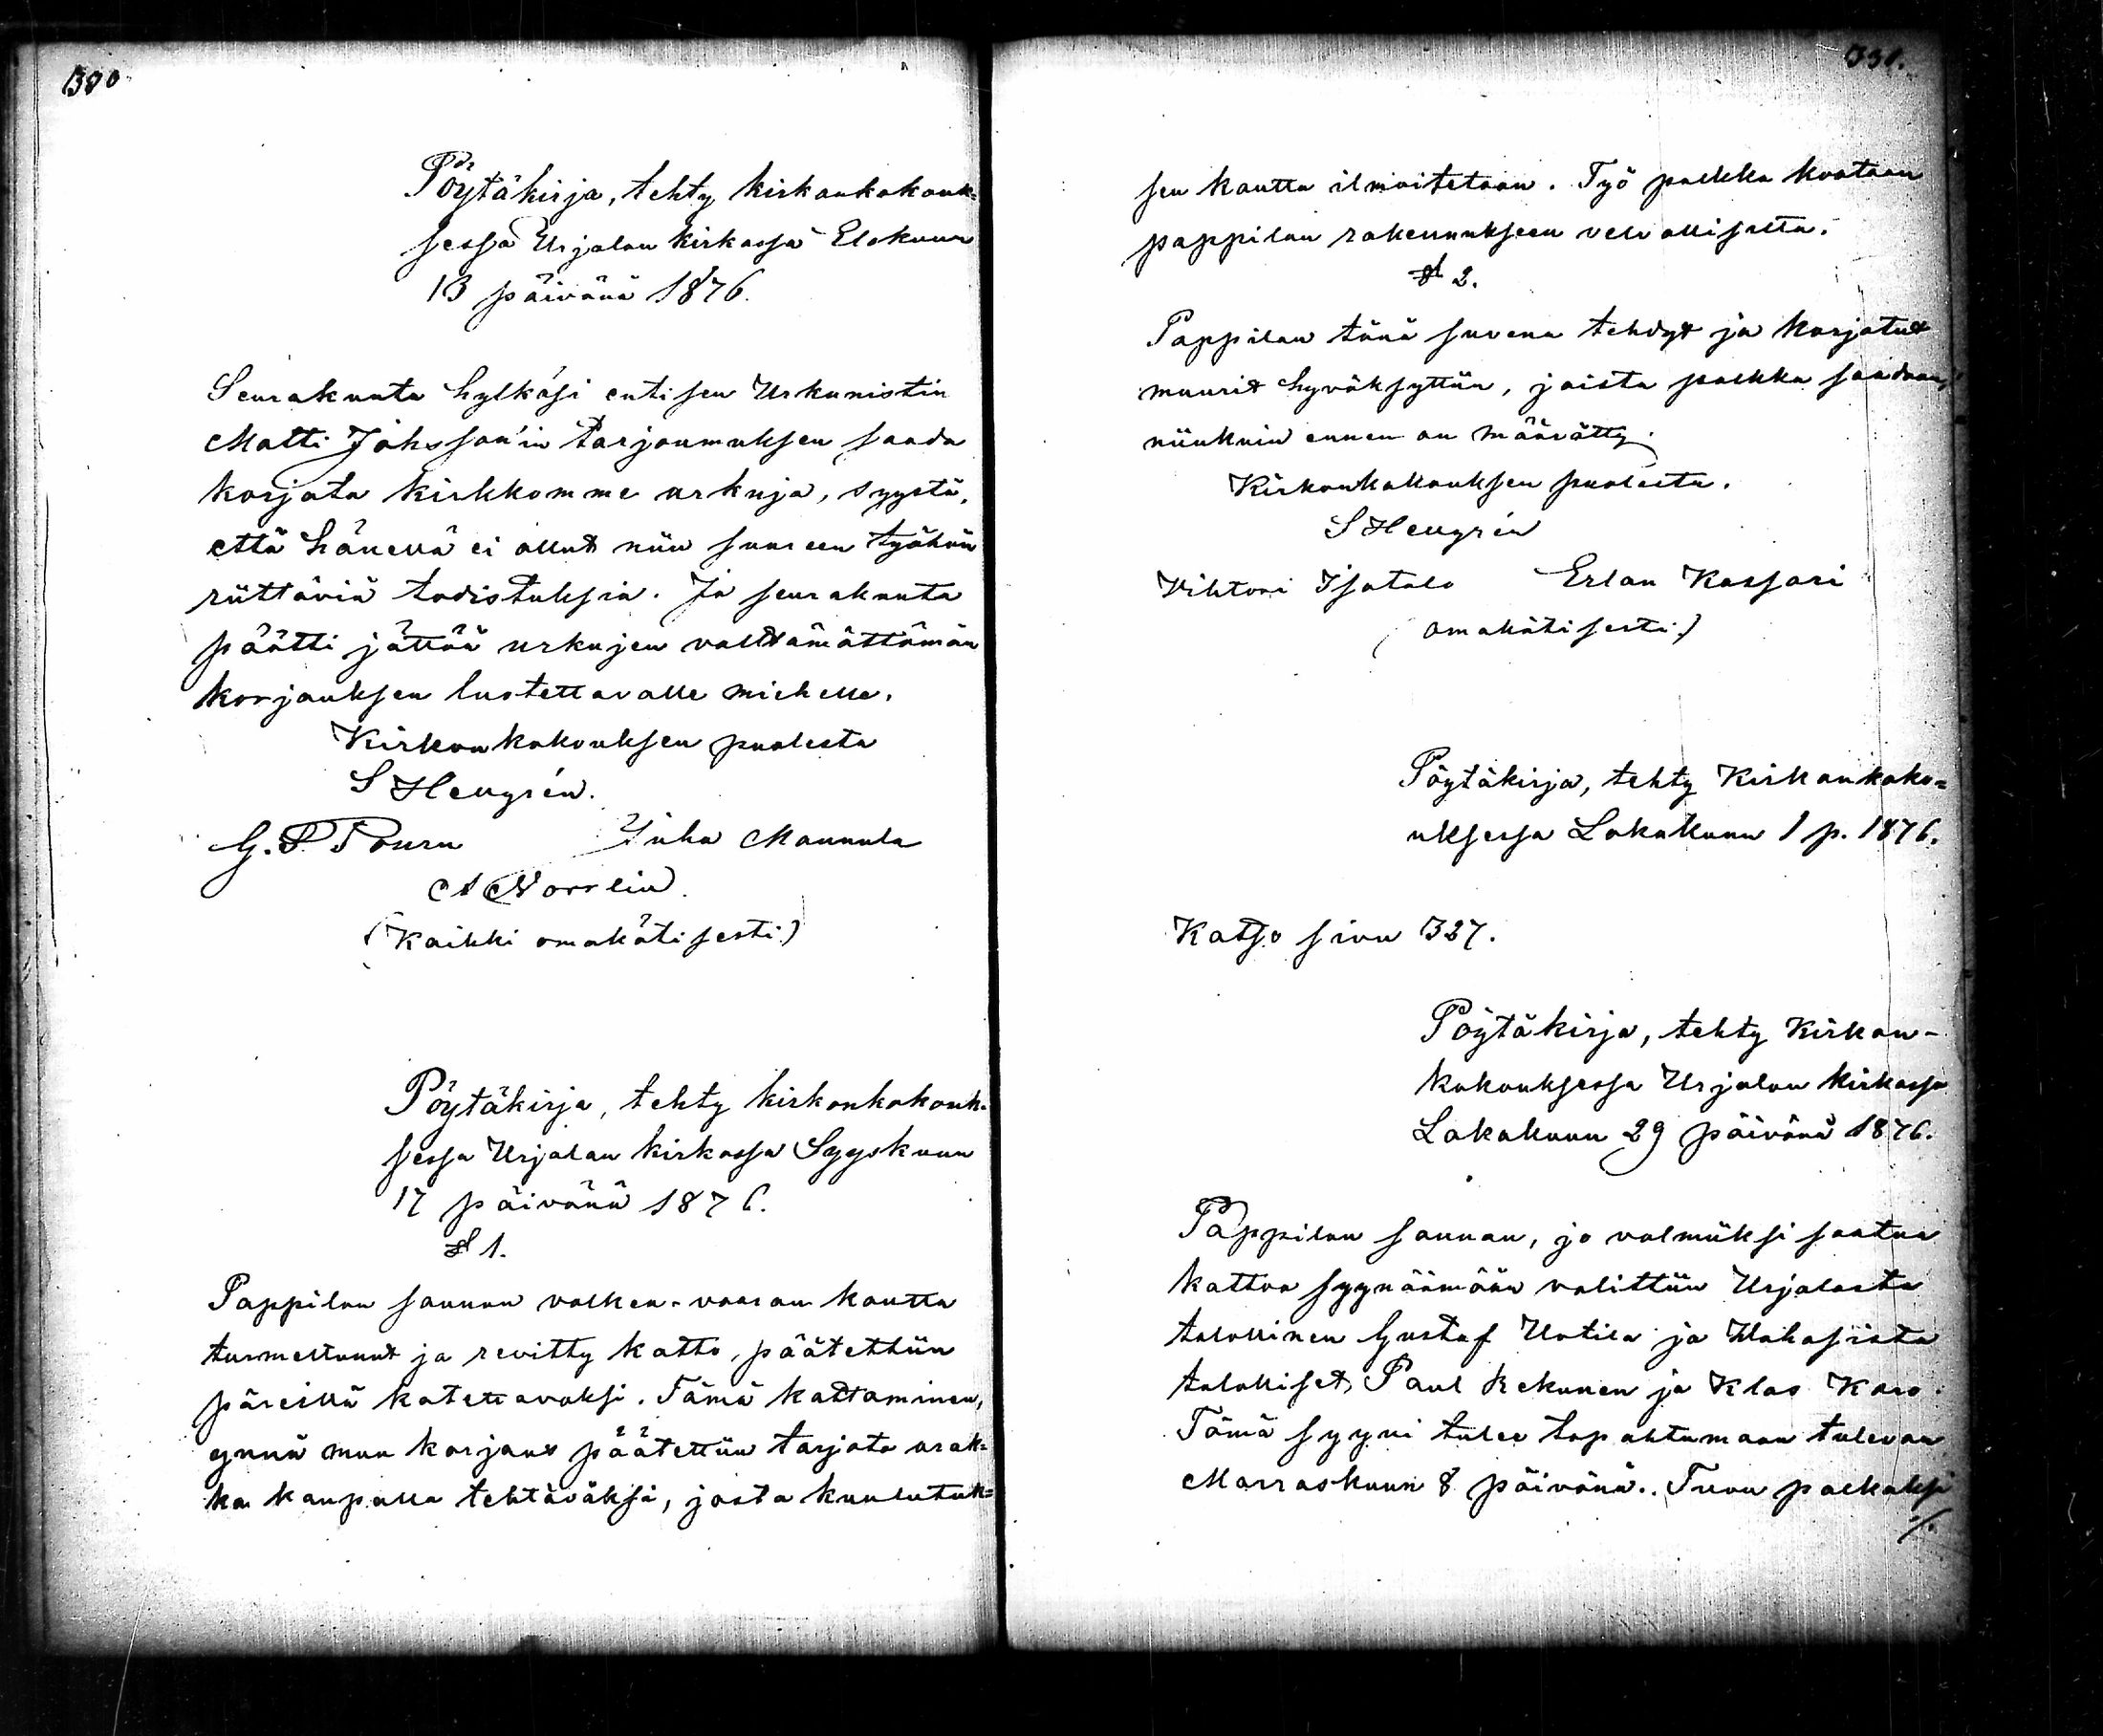 330
Pöytäkirja, tehty kirkonkokouk=
sessa Urjalan kirkossa Elokuun
13 päivänä 1876.
Seurakunta hylkäsi entisen Urkunistin
Matti Johsson'in tarjoumuksen saada
korjata kirkkomme urkuja, syystä,
että hänellä ei ollut niin suureen työhön
riittäviä todistuksia. Ja seurakunta
päätti jättää urkujen valttämättömän
korjauksen luotettavalle miehelle.
Kirkonkokouksen puolesta
S Hellgrén.
G. F Touru Juha Mannula
A Norrlin.
(Kaikki omakätisesti.)
Pöytäkirja, tehty kirkonkokouk=
sessa Urjalan kirkossa Syyskuun
17 päivänä 1876.
§ 1.
Pappilan saunan valkea-vaaran kautta
turmeltunut ja revitty katto, päätettiin
päreillä katettavaksi. Tämä kattaminen,
ynnä muu korjaus päätettiin tarjota urak=
ka kaupalla tehtäväksi, josta kuulutuk=
331.
sen kautta ilmoitetaan. Työ palkka kootaan
pappilan rakennukseen velvollisilta.
§ 2.
Pappilan tänä suvena tehdyt ja korjatut
muurit hyväksyttiin, joista palkka saadaan,
niinkuin ennen on määrätty.
Kirkonkokouksen puolesta.
S Hellgrén
Vihtori Isotalo Erlan Kassari
(omakätisesti.)
Pöytäkirja, tehty Kirkonkoko=
uksessa Lokakuun 1 p. 1876.
Katso sivu 327.
Pöytäkirja, tehty Kirkon-
kokouksessa Urjalan kirkossa
Lokakuun 29 päivänä 1876.
Pappilan saunan, jo valmiiksi saatua
kattoa syynäämään valittiin Urjalasta
talollinen Gustaf Uotila ja Wahosista
talolliset, Paul Rekunen ja Klas Karo.
Tämä syyni tulee tapahtumaan tulevan
Marraskuun 8 päivänä. Tuvu palkaksi
./.